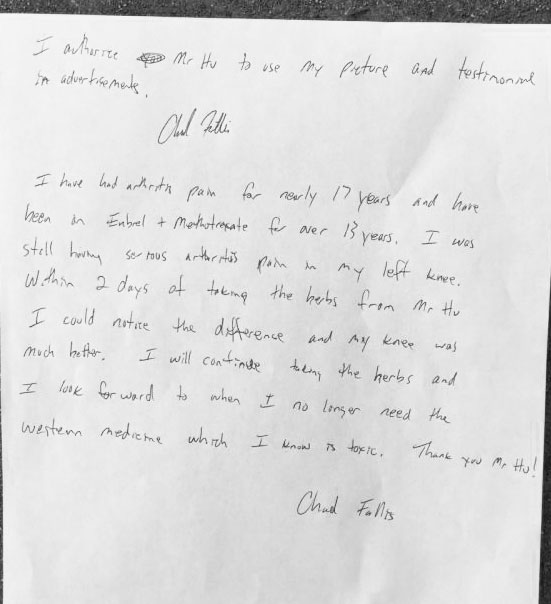 I authorize Mr Hu to use my picture and testimonial
in advertisements.
Chad Fallis
I have had arthritis pain for nearly 17 years and have
been on Enbrel + Methotrexate for over 13 years. I was
still having serious arthritis pain in my left knee.
Within 2 days of taking the herbs from Mr Hu
I could notice the difference and my knee was
much better. I will continue taking the herbs and
I look forward to when I no longer need the
western medicine which I know is toxic. Thank you Mr Hu!
Chad Fallis